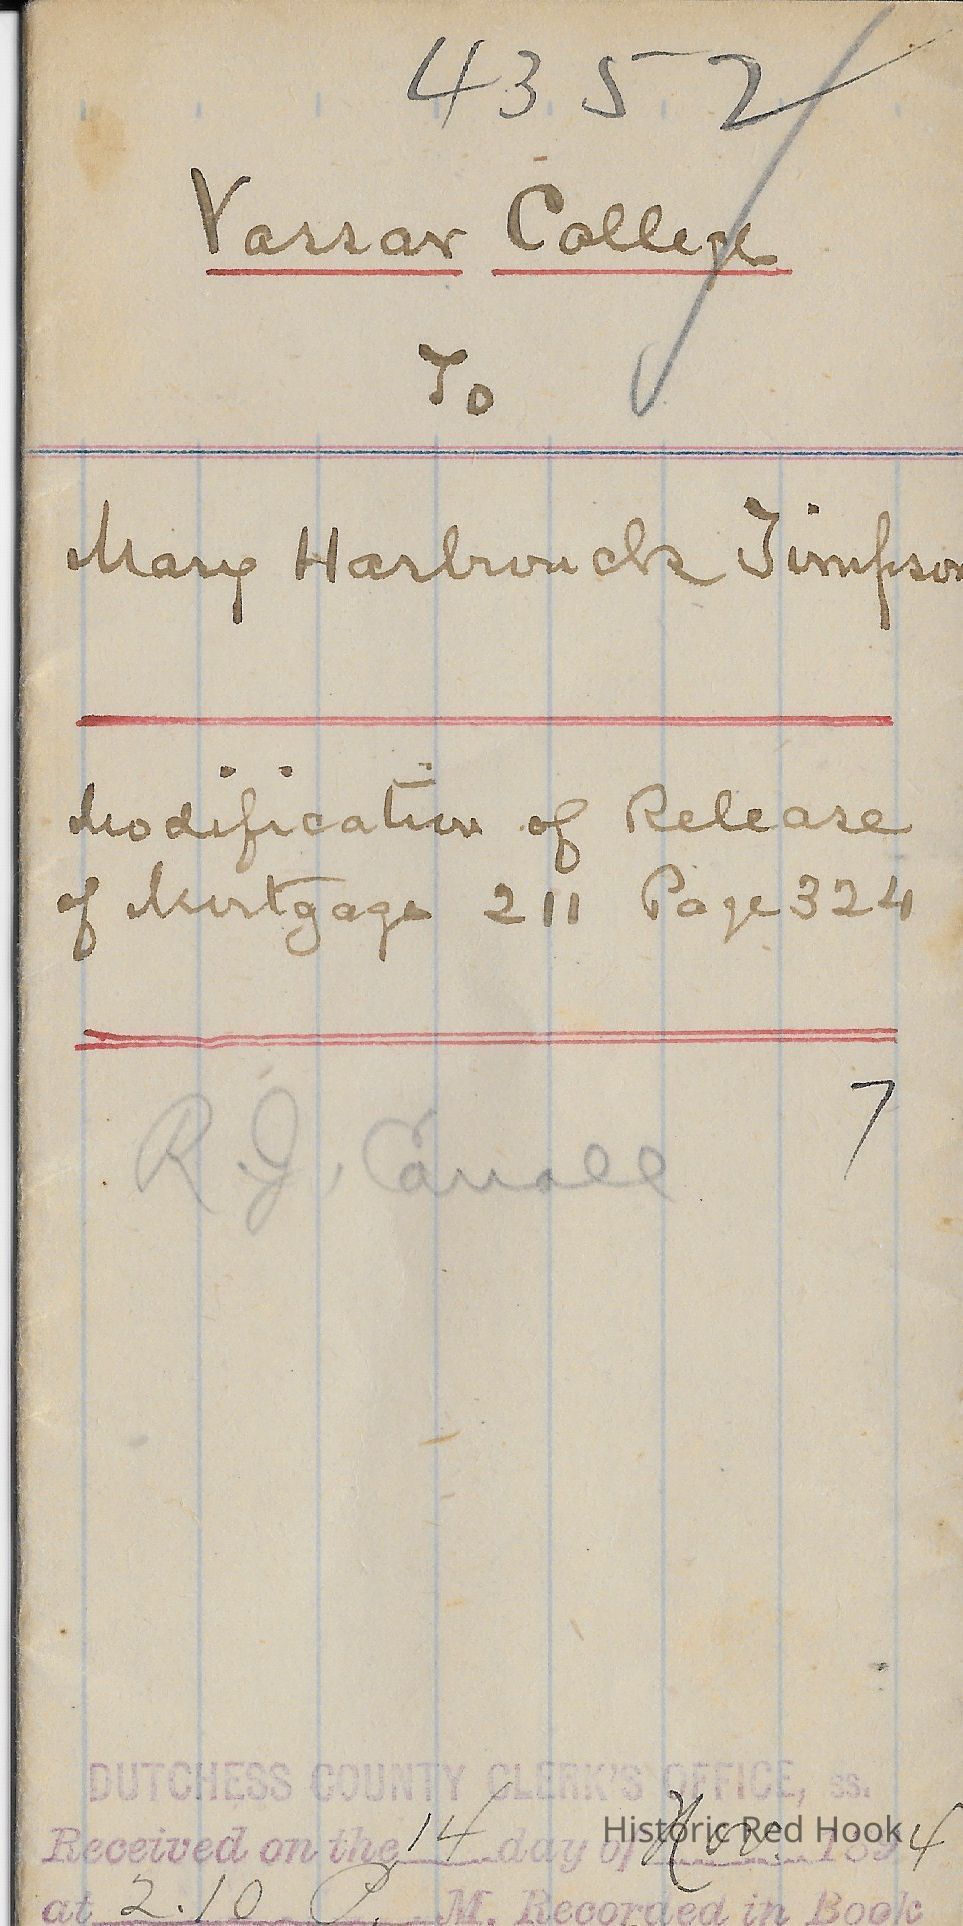 4352
Vassar College
To
Mary Hasbrouck Timpson
Modification of Release
of Mortgage 211 Page 324
7
R. J. Carroll
DUTCHESS COUNTY CLERK'S OFFICE, ss.
Received on the 14 day of Nov. 1894
at 2.10 P. M. Recorded in Book
Historic Red Hook